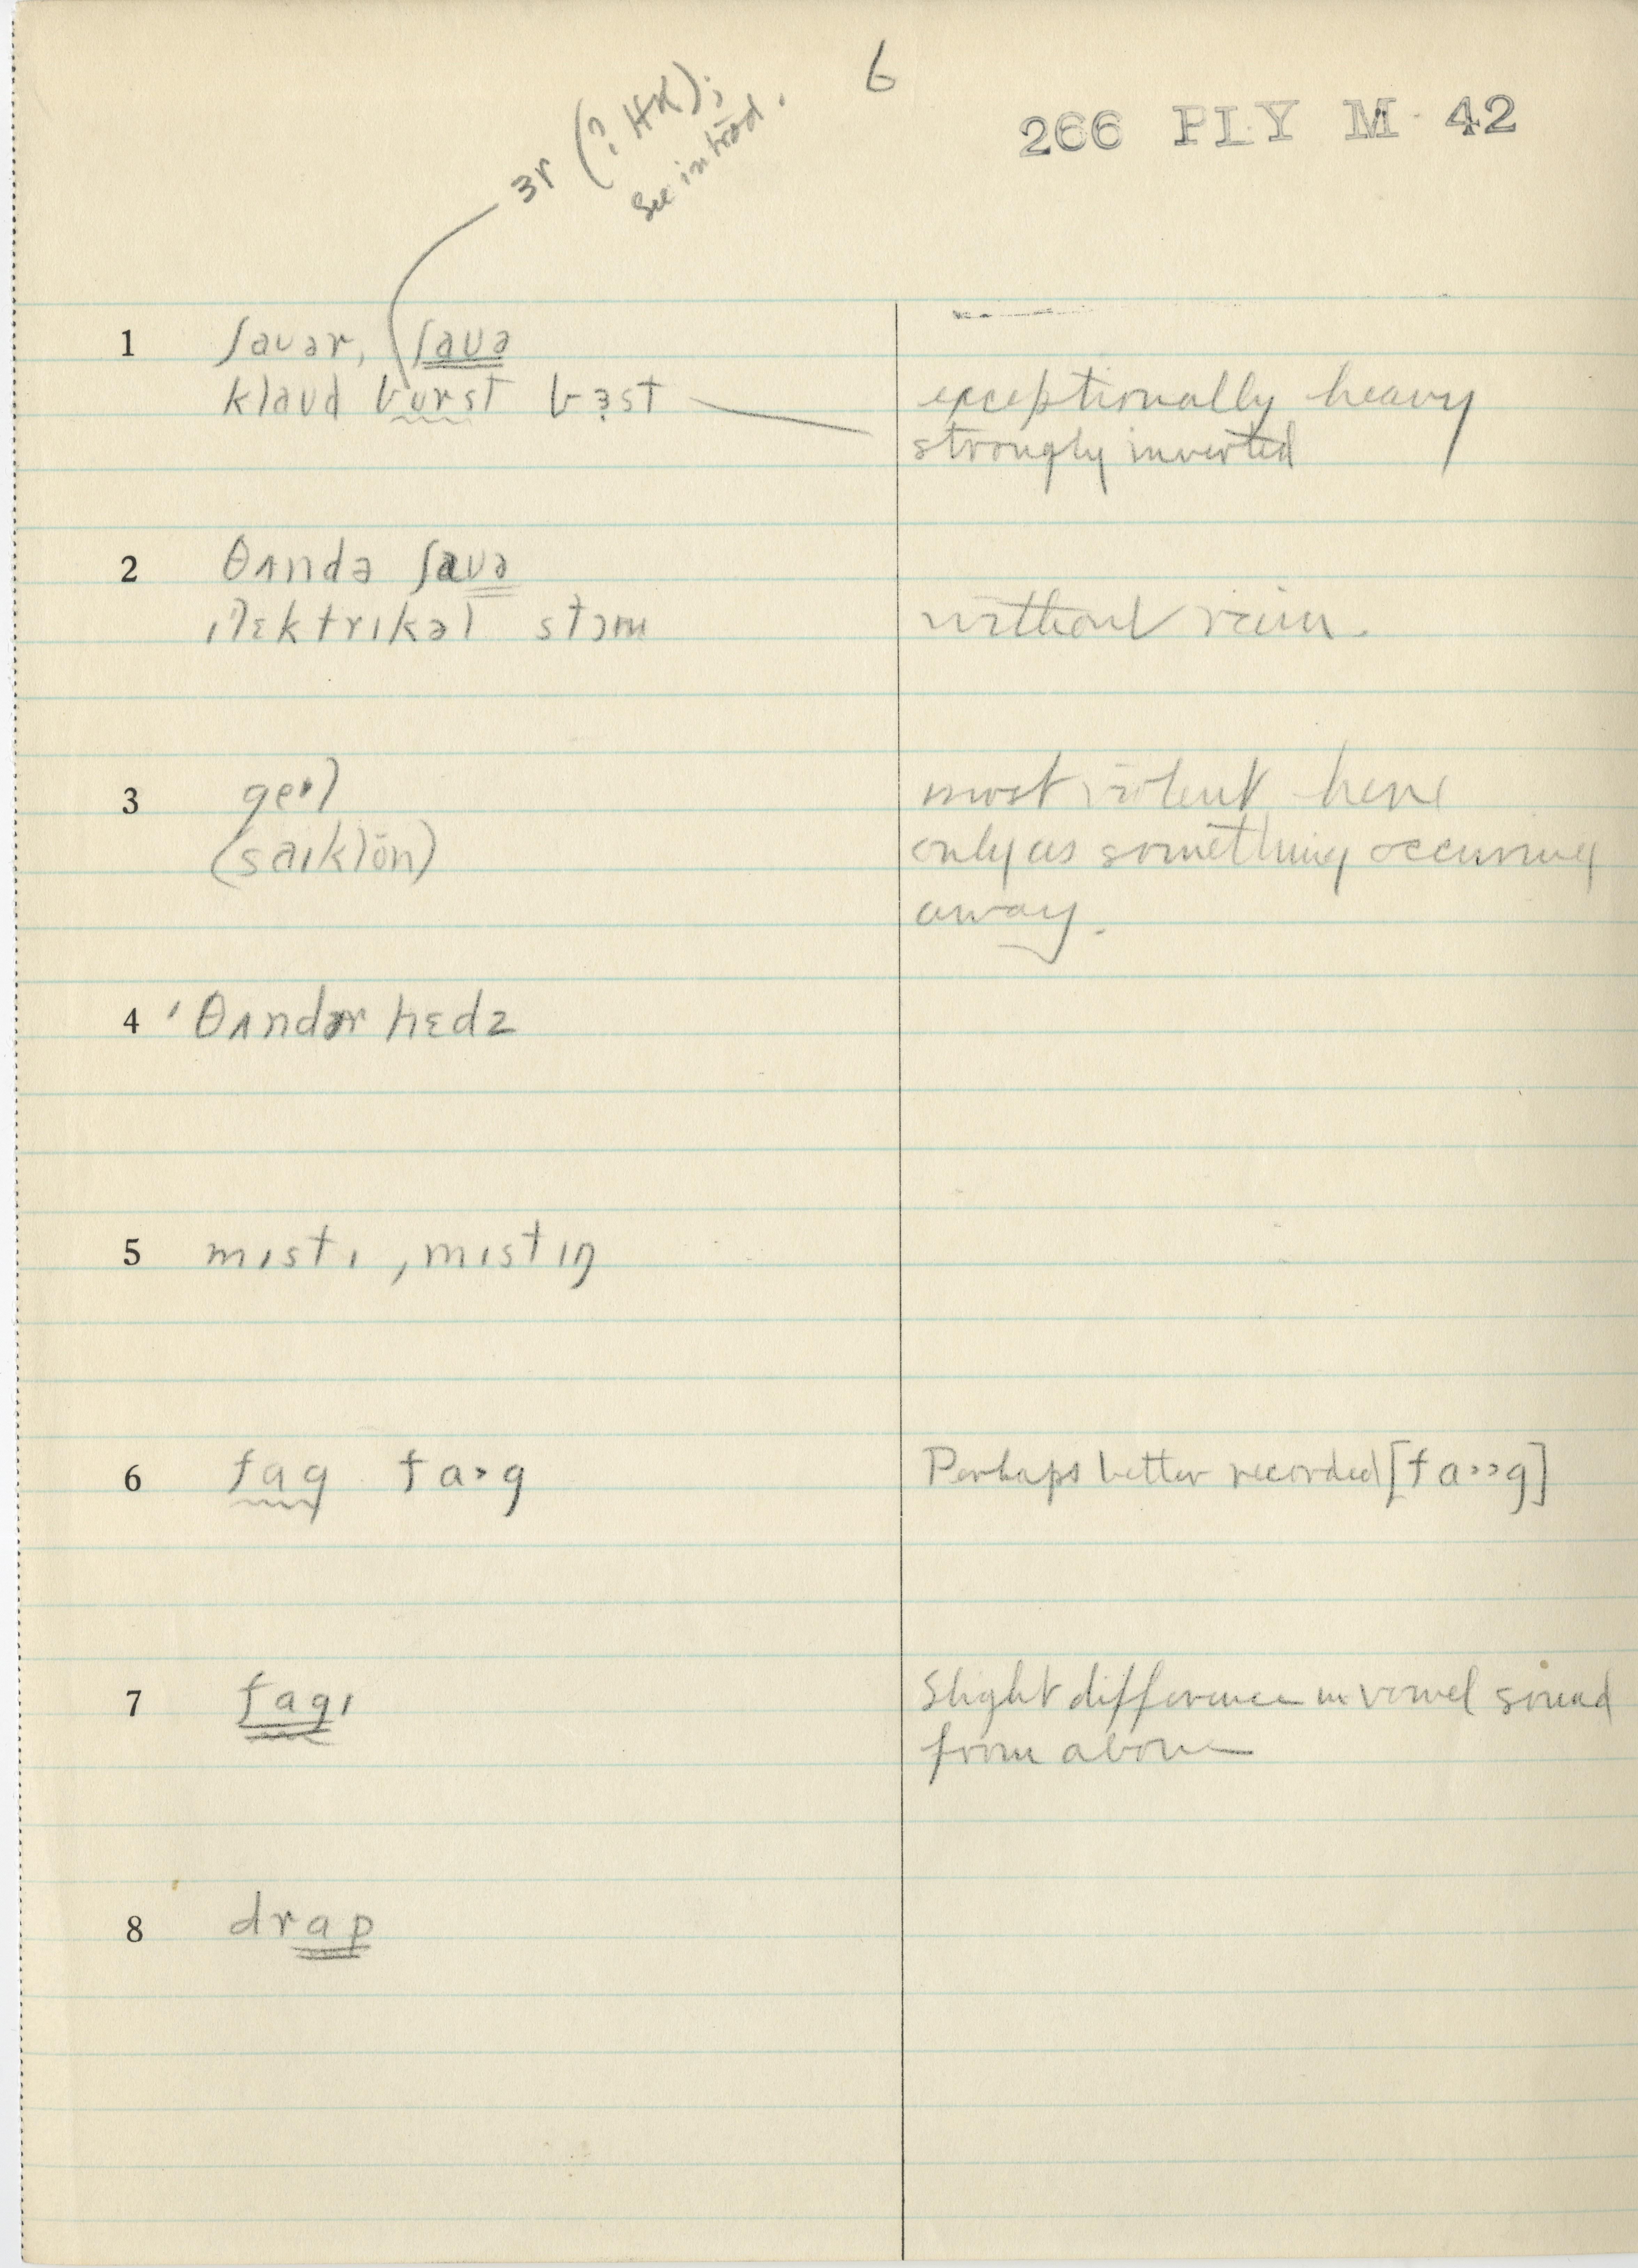 6
266 PLY M 42
ɜr (? HK);
See introd.
1 ʃaʊər, ʃaʊə
klaʊd bʊrst bɜst
exceptionally heavy
strongly inverted
2 θʌndə ʃaʊə
ɪlɛktrɪkəl stɔm
without rain.
3 geɪl
(saɪklōn)
most violent here
only as something occurring
away.
4 ˈθʌndər hɛdz
5 mɪstɪ, mɪstɪŋ
6 fɑg fɑ˃g
Perhaps better recorded [fɑ˃˃g]
7 fɑgɪ
Slight difference in vowel sound
from above
8 drɑp